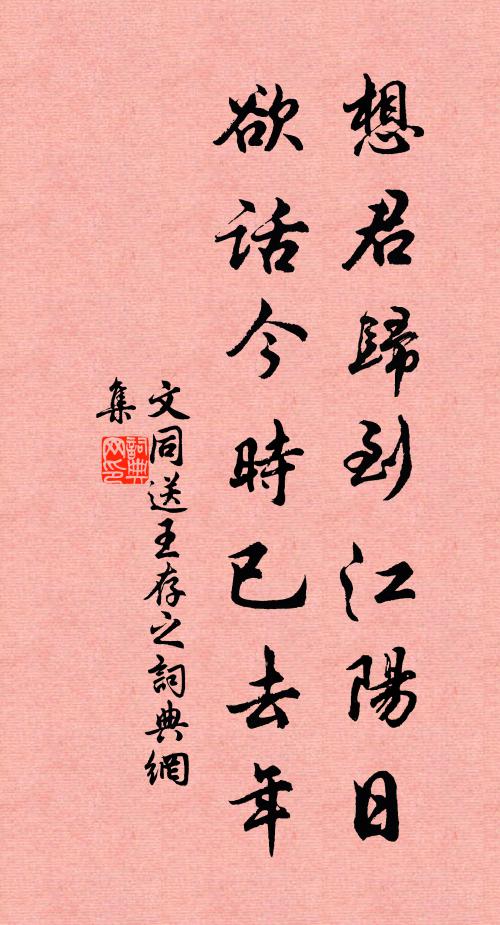 想君歸到江陽日
欲話今時已去年
文同送王存之詞典網
集
詞典网印